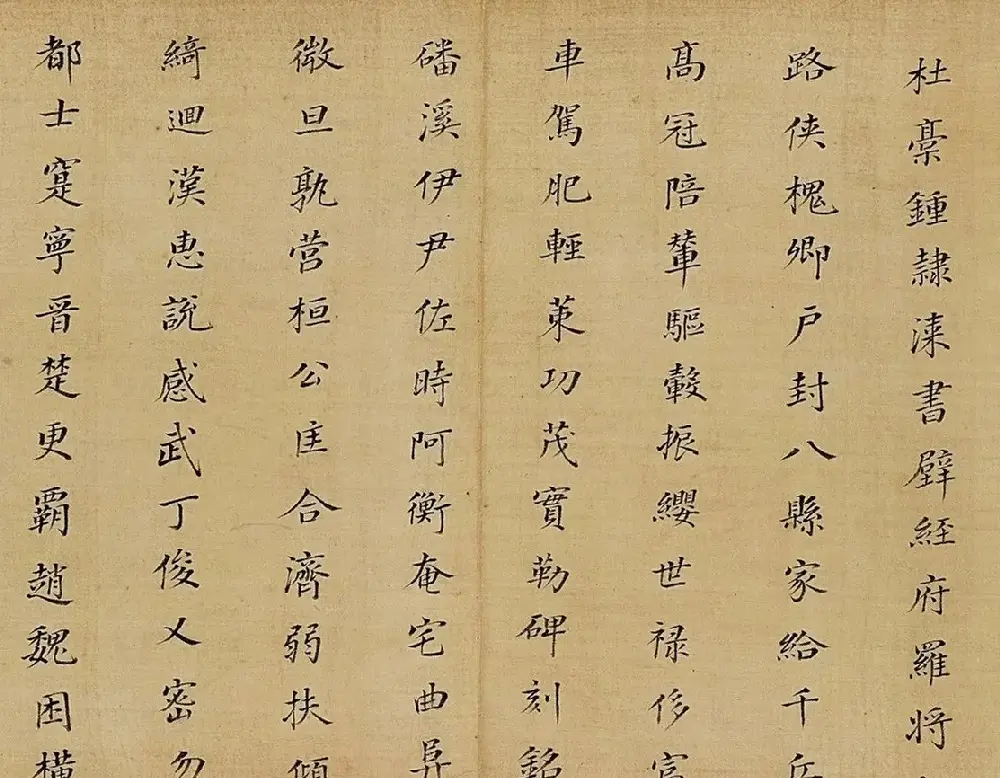 杜稾鍾隷漆書壁經府羅将
路俠槐卿户封八縣家給千兵
髙冠陪輦驅轂振纓世禄侈富
車駕肥輕策功茂實勒碑刻銘
磻溪伊尹佐時阿衡奄宅曲阜
微旦孰營桓公匡合濟弱扶傾
綺迴漢惠說感武丁俊乂密勿
都士寔寧晉楚更覇趙魏困橫